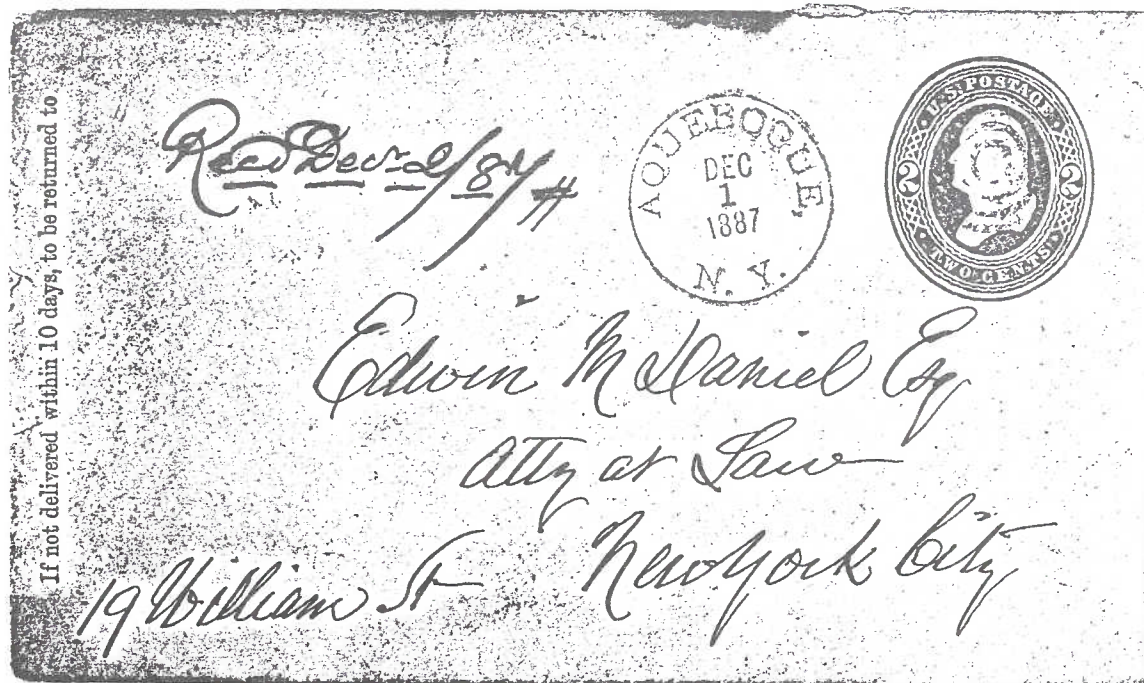 If not delivered within 10 days, to be returned to
Recd Decr 2/87
AQUEBOGUE,
DEC
1
1887
N. Y.
U.S. POSTAGE
2 2
TWO CENTS
Edwin M Daniel Esq
Atty at Law
New York City
19 William St